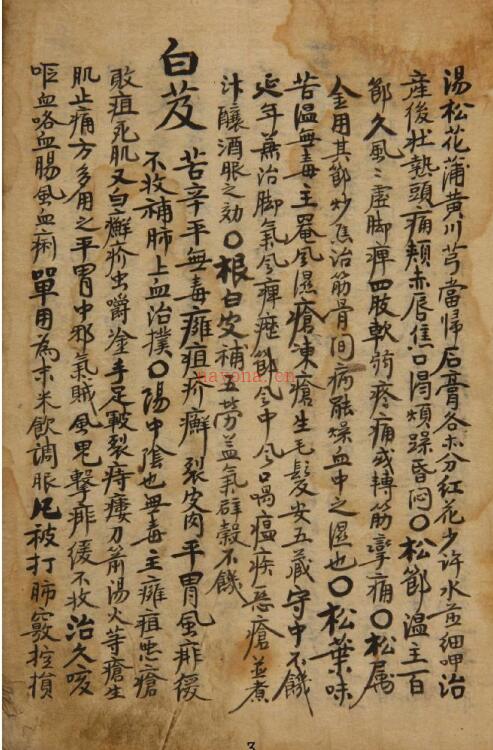 湯松花蒲黄川芎當帰石膏各分红花少许水並細呷治
産後状熱頭痛頰赤唇焦口渴煩躁昏闷〇松節温主百
節久風〻虛脚痺四肢軟疼痛或轉筋攣痛〇松属
金用其節炒焦治筋骨间病能燥血中之濕也〇松葉味
苦温無毒主罨風濕瘡凍瘡生毛髮安五藏守中不饑
延年兼治脚氣风痺歷節风中风口喎瘟疾惡瘡並煮
汁釀酒服之効〇根白皮補五劳益氣辟穀不饑
白芨
苦辛平無毒癰疽疥癬裂皮肉平胃風痱緩
不收補肺止血治撲〇陽中陰也無毒主癰疽惡瘡
敗疽死肌又白癬疥虫嚼塗手足皸裂痔瘻刀箭湯火等瘡生
肌止痛方多用之平胃中邪氣賊風鬼擊痱緩不收治久咳
嘔血咯血腸風血痢單用為末米飲調服凡被打肺竅控損
nayona.cn
3